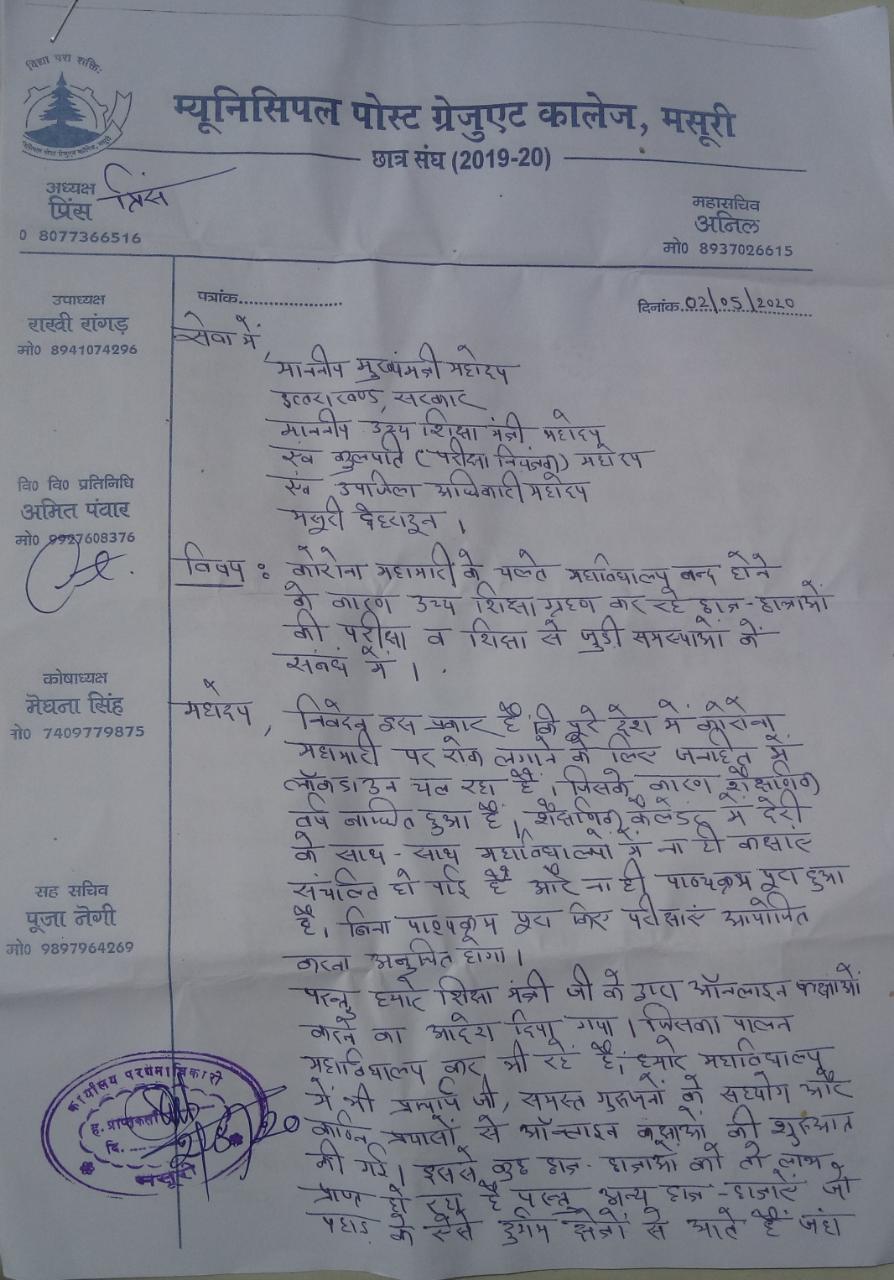 विद्या परा शक्तिः
म्यूनिसिपल पोस्ट ग्रेजुएट कालेज, मसूरी
छात्र संघ (2019-20)
अध्यक्ष
प्रिंस
प्रिंस
0 8077366516
महासचिव
अनिल
मो0 8937026615
उपाध्यक्ष
राखी रांगड़
मो0 8941074296
वि0 वि0 प्रतिनिधि
अमित पंवार
मो0 9927608376
कोषाध्यक्ष
मेघना सिंह
मो0 7409779875
सह सचिव
पूजा नेगी
मो0 9897964269
पत्रांक......................
दिनांक 02/05/2020
सेवा में,
माननीय मुख्यमंत्री महोदय
उत्तराखण्ड, सरकार
माननीय उच्च शिक्षा मंत्री महोदय
एंव कुलपति (परीक्षा नियंत्रक) महोदय
एंव उपजिला अधिकारी महोदय
मसूरी देहरादून ।
विषय : कोरोना महामारी के चलते महाविधालय बन्द होने
के कारण उच्च शिक्षा ग्रहण कर रहे छात्र-छात्राओं
की परीक्षा व शिक्षा से जुडी समस्याओं के
संबंध में ।
महोदय,
निवेदन इस प्रकार है कि पूरे देश में कोरोना
महामारी पर रोक लगाने के लिए जनहित में
लॉकडाउन चल रहा है। जिसके कारण शैक्षणिक
वर्ष बाधित हुआ है, शैक्षणिक कैलेंडर में देरी
के साथ-साथ महाविधालयो में ना ही कक्षाएं
संचालित हो पाई है और ना ही पाठ्यक्रम पूरा हुआ
है। बिना पाठ्यक्रम पूरा किए परीक्षाएं आयोजित
करना अनुचित होगा।
परन्तु हमारे शिक्षा मंत्री जी के द्वारा ऑनलाइन कक्षाओं
करने का आदेश दिया गया। जिसका पालन
महाविधालय कर भी रहे है। हमारे महाविधालय
में भी प्राचार्य जी, समस्त गुरुजनों के सहयोग और
कठिन प्रयासों से ऑनलाइन कक्षाओं की शुरुआत
की गई। इससे कुछ छात्र-छात्राओं को तो लाभ
प्राप्त हो रहा है परन्तु अन्य छात्र-छात्राएं जो
पहाड़ के ऐसे दुर्गम क्षेत्रों से आते हैं जहां
कार्यालय परगनाधिकारी
ह. प्राप्तकर्ता
दि.
मसूरी